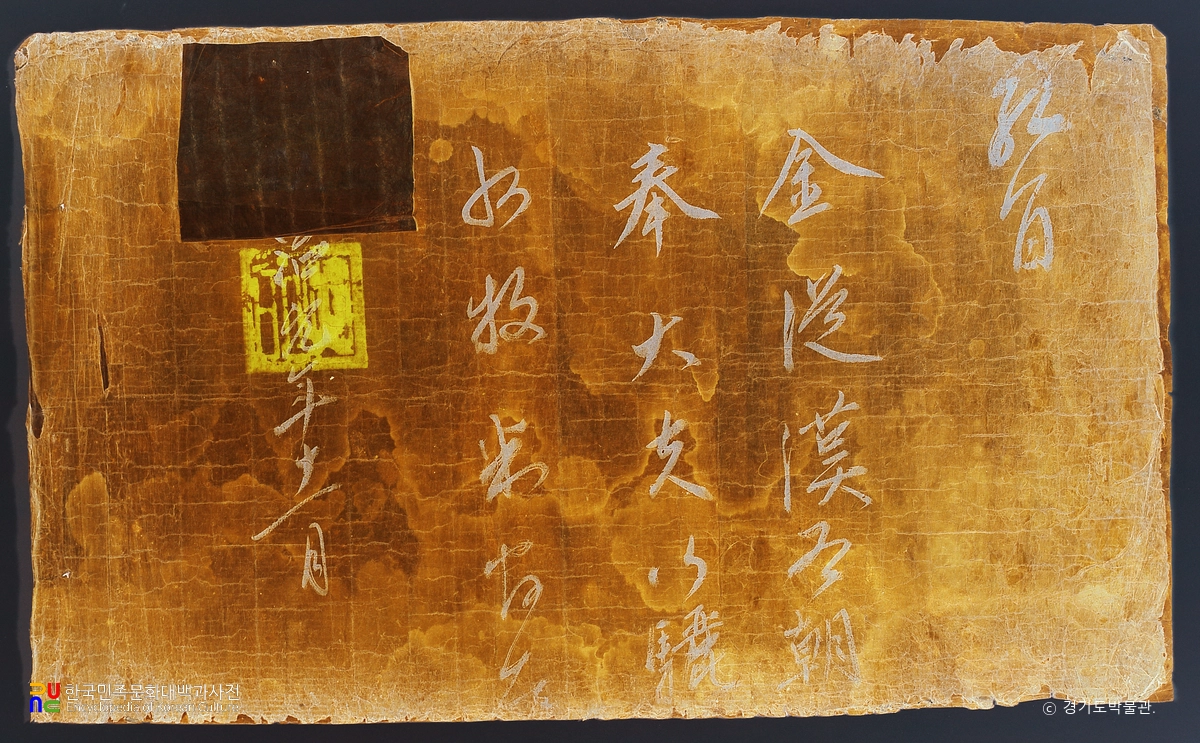 敎旨
金從漢爲朝
奉大夫行驪
州牧判官者
年十一月
한국민족문화대백과사전
Encyclopedia of Korean Culture
© 경기도박물관.